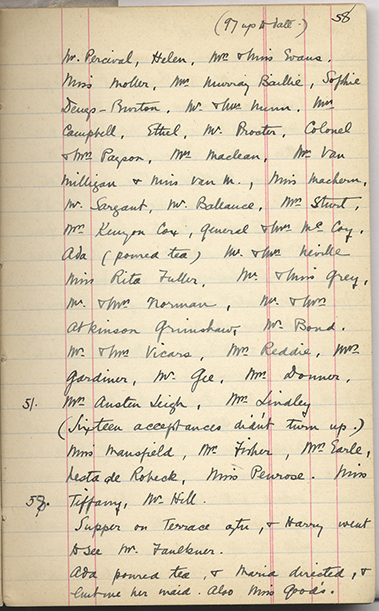 58
(97 up to date.)
Mr. Percival, Helen, Mrs & Miss Evans.
Miss Moller, Mrs Murray Baillie, Sophie
Denys-Burton. Mr. & Mrs Nunn. Mrs
Campbell, Ethel, Mr. Procter, Colonel
& Mrs Payson, Mrs Maclean, Mrs Van
Milligan & Miss Van M., Miss Machern,
Mr. Sargant, Mr. Ballance, Mrs Sturt,
Mrs Kenyon Cox, General & Mrs Mc Coy,
Ada (poured tea) Mr. & Mrs Neville
Miss Rita Fuller, Mr. & Miss Grey,
Mr. & Mrs Norman, Mr. & Mrs
Atkinson Grimshaw, Mr. Bond.
Mr. & Mrs Vicars, Mrs Reddie, Mrs
Gardiner, Mr. Gee, Mrs Donner,
51. Mrs Austen Leigh, Mrs Lindley
(Sixteen acceptances didn't turn up.)
Miss Mansfield, Mrs Fisher, Mrs Earle,
Nesta de Robeck, Miss Penrose. Miss
Tiffany, Mr. Hill.
Supper on Terrace after, & Harry went
to see Mr. Faulkner.
Ada, poured tea, & Maria directed, &
lent me her maid. Also Miss Goods.